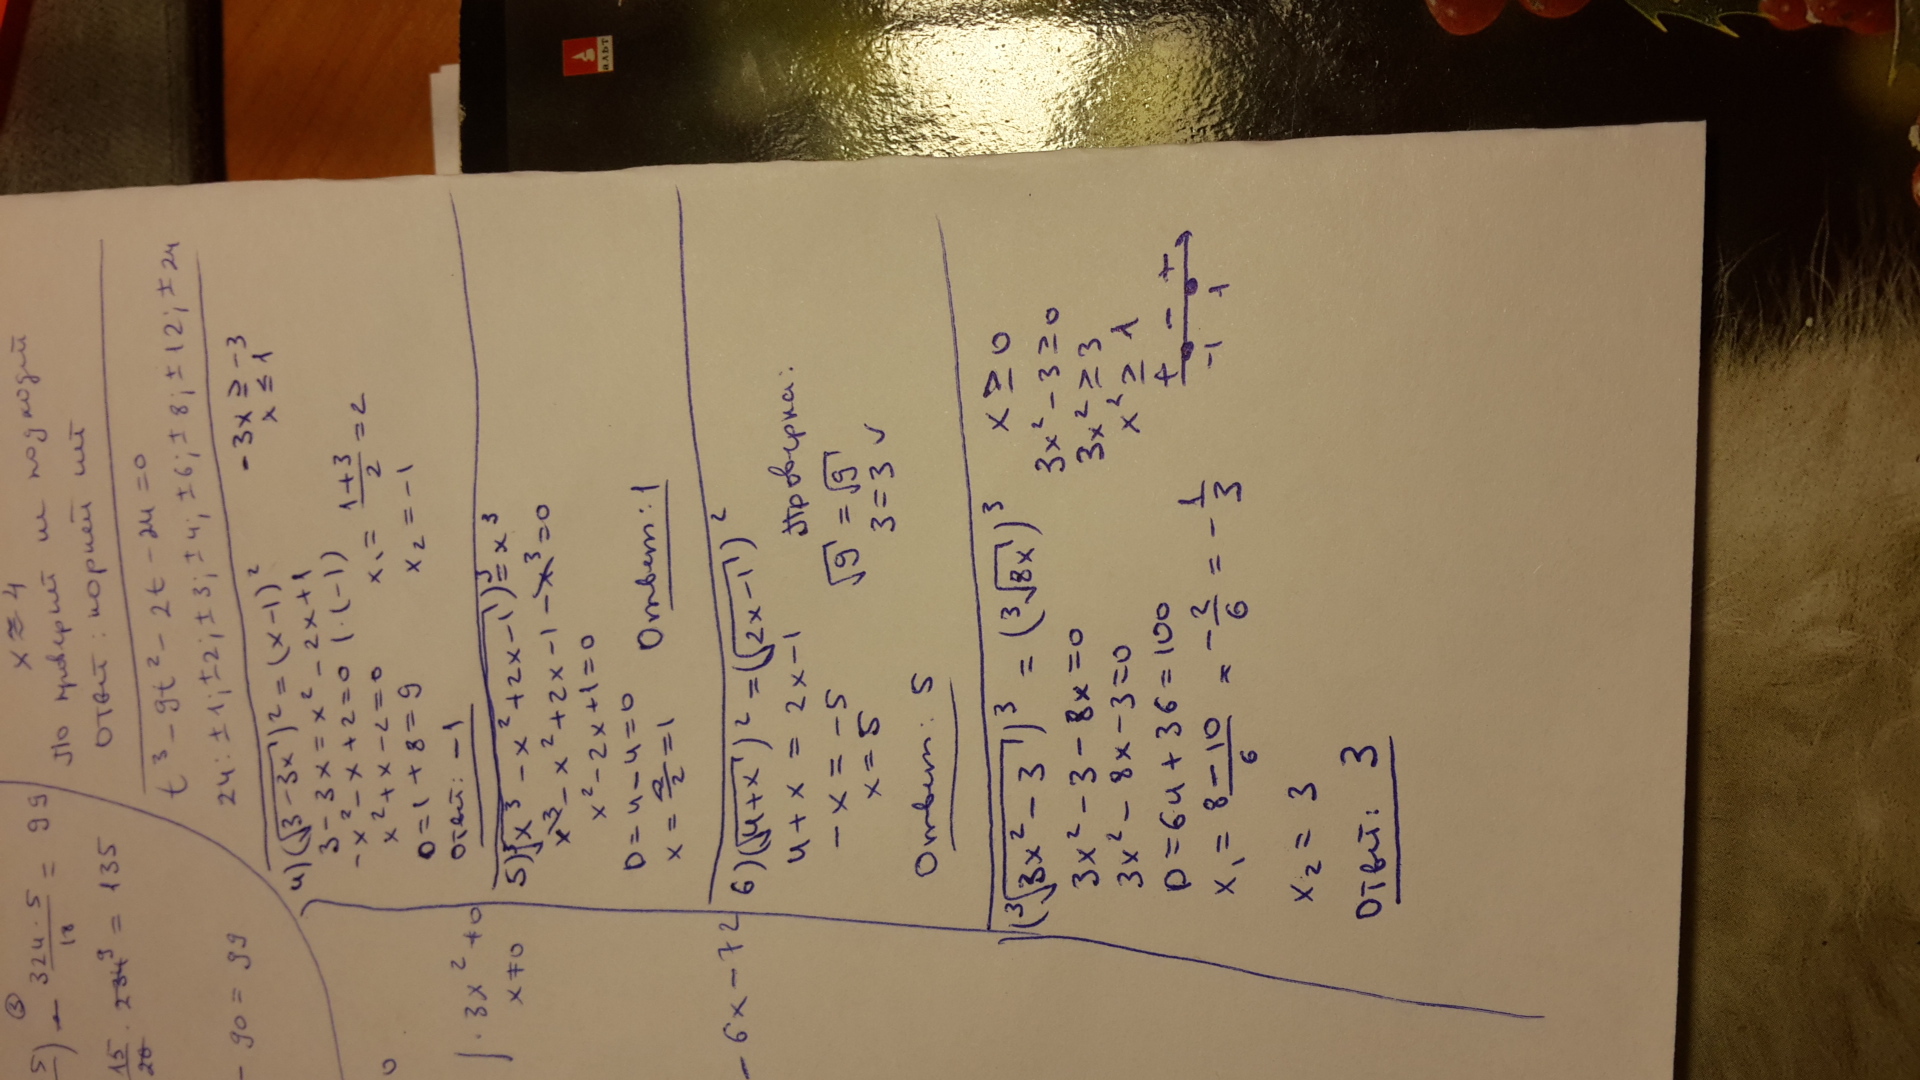 АЛЬТ
x ≥ 4
Ответ: корней нет
t³ - 9t² - 2t - 24 = 0
24: ±1; ±2; ±3; ±4; ±6; ±8; ±12; ±24
4) (√3-3x)² = (x-1)²
-3x ≥ -3
x ≤ 1
3 - 3x = x² - 2x + 1
-x² - x + 2 = 0 | · (-1)
x² + x - 2 = 0
D = 1 + 8 = 9
x₁ = 1+3/2 = 2
x₂ = -1
Ответ: -1
5) ³√(x³ - x² + 2x - 1)³ = x³
x³ - x² + 2x - 1 - x³ = 0
x² - 2x + 1 = 0
D = 4 - 4 = 0
x = 2/2 = 1
Ответ: 1
6) (√4+x)² = (√2x-1)²
4 + x = 2x - 1
-x = -5
x = 5
Проверка:
√9 = √9
3 = 3 ✓
Ответ: 5
(³√3x² - 3)³ = (³√8x)³
3x² - 3 - 8x = 0
3x² - 8x - 3 = 0
D = 64 + 36 = 100
x₁ = 8-10/6 = -2/6 = -1/3
x₂ = 3
Ответ: 3
x ≥ 0
3x² - 3 ≥ 0
3x² ≥ 3
x² ≥ 1
+ - +
-1 1
= 99
= 135
- 90 = 99
| · 3x² ≠ 0
x ≠ 0
- 6x - 72